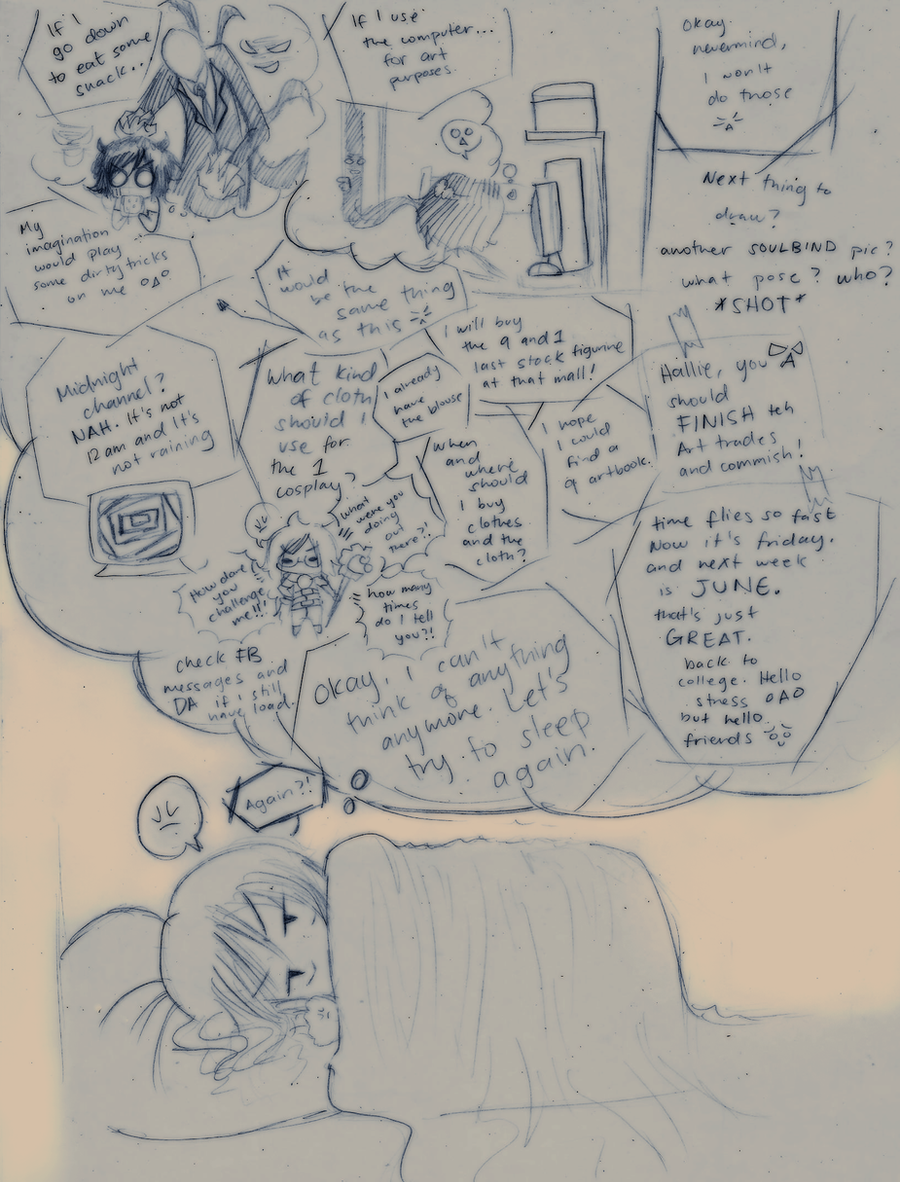 If I
go down
to eat some
snack...
If I use
the computer...
for art
purposes.
okay.
nevermind,
I won't
do those
My
imagination
would play
some dirty tricks
on me OAO
Next thing to
draw?
another SOULBIND pic?
what pose? who?
*SHOT*
It
would
be the
same thing
as this
Midnight
channel?
NAH. It's not
12 am and It's
not raining
what kind
of cloth
should I
use for
the 1
cosplay?
I already
have
the blouse
I will buy
the 9 and 1
last stock figurine
at that mall!
When
and
where
should
I buy
clothes
and the
cloth?
I hope
I could
find a
9 artbook.
Hallie, you
should
FINISH teh
Art trades
and commish!
What
were you
doing
out
there?!
How dare
you
challenge
me!!!
how many
times
do I tell
you?!
time flies so fast
Now it's friday.
and next week
is JUNE.
that's just
GREAT.
back to
college. Hello
stress OAO
but hello
friends
check FB
messages and
DA if I still
have load.
Okay, I can't
think of anything
anymore. Let's
try to sleep
again.
Again?!